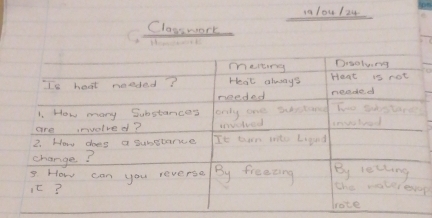 19/04/24
Classwork
Homework
Melting
Dissolving
Is heat needed ?
Heat always
needed
Heat is not
needed
1. How many Substances
are involved ?
only one Substance
involved
Two Substances
involved
2. How does a substance
change ?
It turn into Liquid
3. How can you reverse
it ?
By freezing
By letting
the water evap
rate